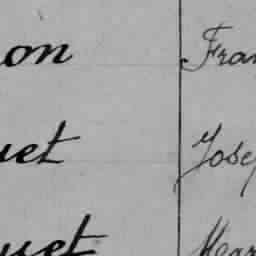 on Fran
uet Josep
uet Mar